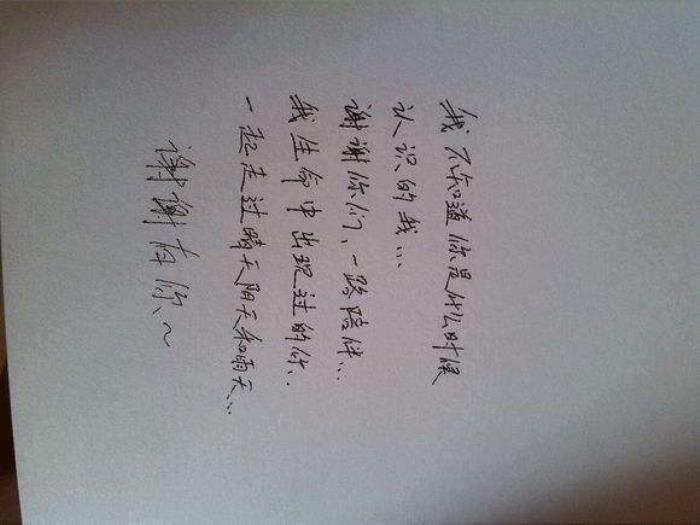 我不知道你是什么时候
认识的我...
谢谢你们、一路陪伴...
我生命中出现过的你..
一起走过晴天阴天和雨天...
谢谢有你、~